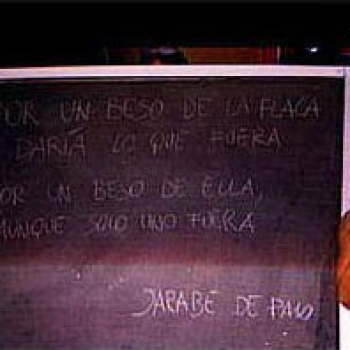 POR UN BESO DE LA FLACA
DARÍA LO QUE FUERA
POR UN BESO DE ELLA,
AUNQUE SOLO UNO FUERA
JARABE DE PALO